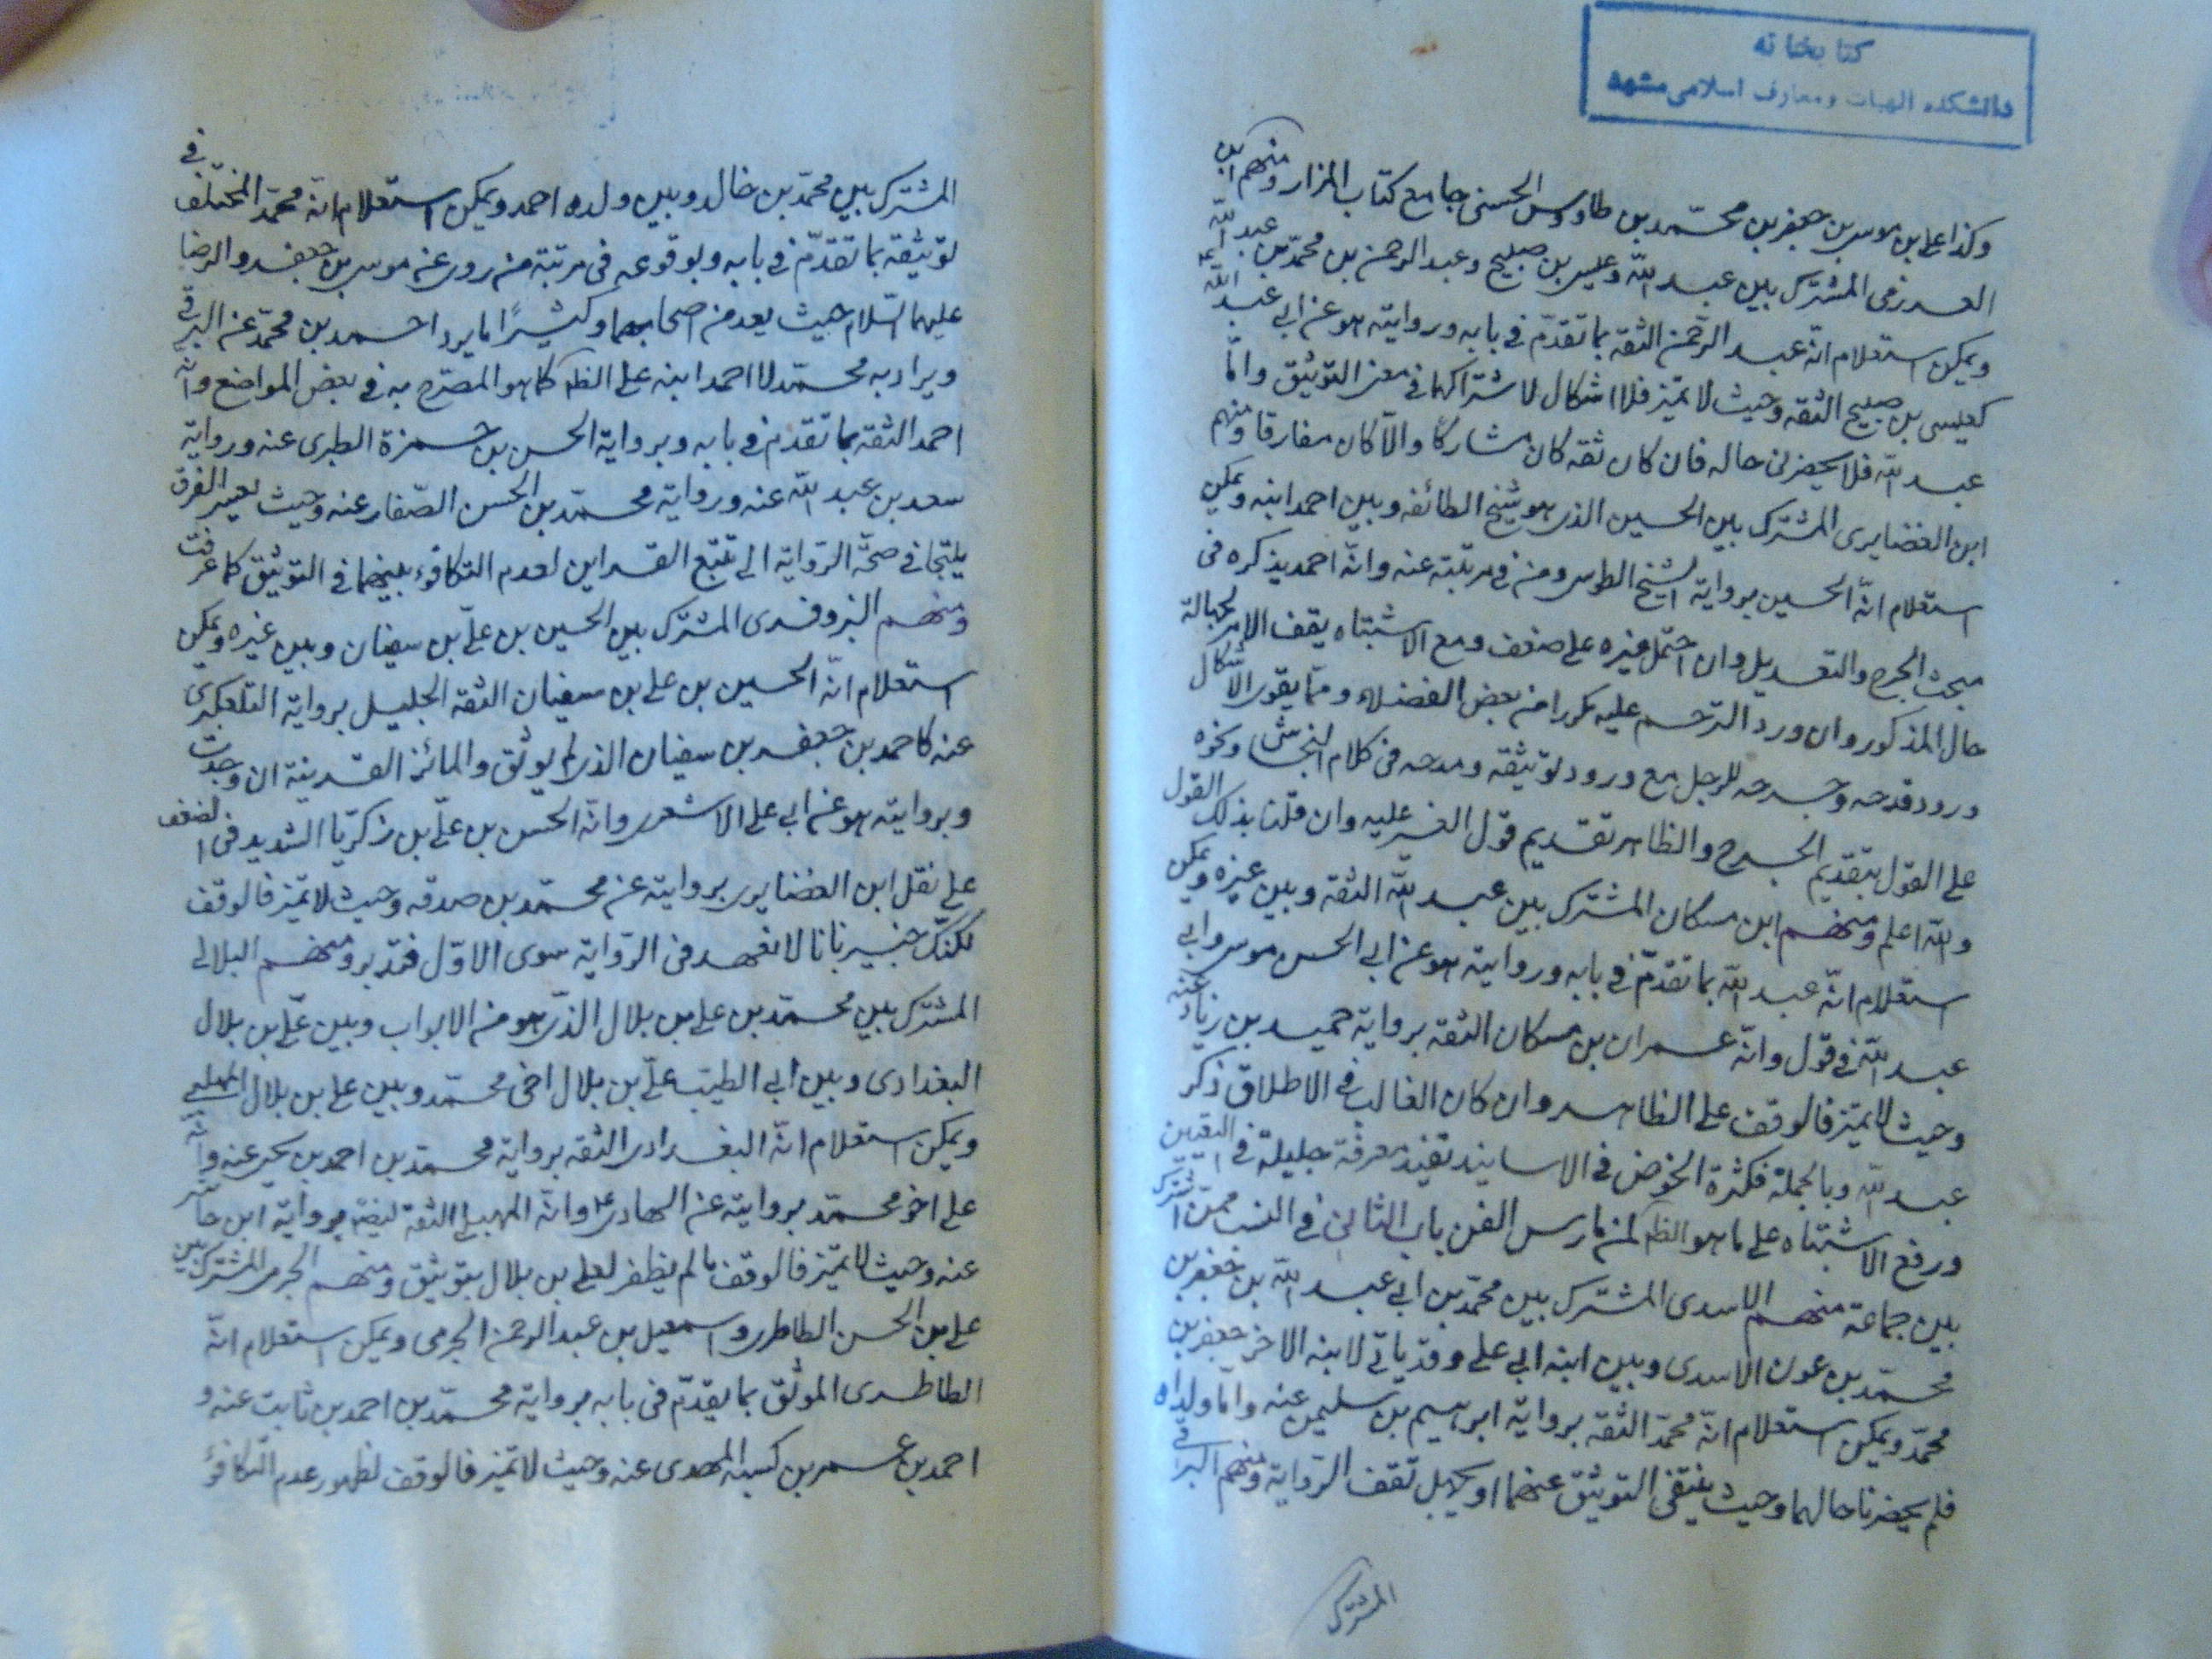 كتابخانه
دانشكده الهيات ومعارف اسلامى مشهد
وكذا على بن موسى بن جعفر بن محمّد بن طاووس الحسنى جامع كتاب المزار ومنهم ابن
العرزمى المشترك بين عبد اللّه وعيسى بن صبيح وعبد الرحمن بن محمّد بن عبد اللّه
ويمكن استعلام انّه عبد الرّحمن الثقة بما تقدّم فى بابه وروايته هو عن ابى عبد اللّه ع
كعيسى بن صبيح الثقه وحيث لا تميّز فلا اشكال لاشتراكهما فى معنى التوثيق وامّا
عبد اللّه فلا يحضرنى حاله فان كان ثقه كان مشاركًا والّا كان مفارقا ومنهم
ابن الغضايرى المشترك بين الحسين الذى هو شيخ الطائفه وبين احمد ابنه ويمكن
استعلام انّه الحسين برواية الشيخ الطوسى ومن فى مرتبته عنه وانّه احمد بذكره فى
مبحث الجرح والتعديل وان احتمل غيره على ضعف ومع الاشتباه يقف الامر لجهالة
حال المذكور وان ورد الترحم عليه مكررا من بعض الفضلاء وممّا يقوى الاشكال
ورود قدحه وجرحه للرجل مع ورود توثيقه ومدحه فى كلام النجاشى ونحوه
على القول بتقديم الجرح والظاهر تقديم قول الغير عليه وان قلنا بذلك القول
واللّه اعلم ومنهم ابن مسكان المشترك بين عبد اللّه الثقة وبين غيره ويمكن
استعلام انّه عبد اللّه بما تقدّم فى بابه وروايته هو عن ابى الحسن موسى وابى
عبد اللّه فى قول وانّه عمران بن مسكان الثقه برواية حميد بن زياد عنه
وحيث لا تميّز فالوقف على الظاهر وان كان الغالب فى الاطلاق ذكر
عبد اللّه وبالجملة فكثرة الخوض فى الاسانيد تفيد معرفة جليلة فى التعيين
ورفع الاشتباه على ما هو الظ لمن مارس الفن باب الثانى فى النسب ممن اشترك
بين جماعة منهم الاسدى المشترك بين محمّد بن ابى عبد اللّه بن جعفر بن
محمّد بن عون الاسدى وبين ابنه ابى على وقد ياتى لابنه الاخر جعفر بن
محمّد ويمكن استعلام انّه محمّد الثقه برواية ابرهيم بن سليمن عنه وامّا ولداه
فلم يحضرنا حالهما وحيث ينتفى التوثيق عنهما او يجهل تقف الرّواية ومنهم البرقى
المشترك
المشترك بين محمّد بن خالد وبين ولده احمد ويمكن استعلام انّه محمّد المختلف فى
توثيقه بما تقدّم فى بابه وبوقوعه فى مرتبة من روى عن موسى بن جعفر والرضا
عليهما السّلام حيث يعد من اصحابهما وكثيرًا ما يرد احمد بن محمّد عن البرقى
ويراد به محمّد لا احمد ابنه على الظ كما هو المصرّح به فى بعض المواضع وانّه
احمد الثقة بما تقدم فى بابه وبرواية الحسن بن حمزة الطبرى عنه ورواية
سعد بن عبد اللّه عنه ورواية محمّد بن الحسن الصّفار عنه وحيث يعسر الفرق
يلتجا فى صحّة الرّواية الى تتبّع القراين لعدم التكافؤ بينهما فى التوثيق كما عرفت
ومنهم البزوفرى المشترك بين الحسين بن علىّ بن سفيان وبين غيره ويمكن
استعلام انّه الحسين بن على بن سفيان الثقة الجليل برواية التلعكبرى
عنه كاحمد بن جعفر بن سفيان الذى لم يوثق والمائز القرينة ان وجدت
وبروايته هو عن ابى على الاشعرى وانّه الحسن بن علىّ بن زكريّا الشديد فى الضعف
على نقل ابن الغضايرى بروايته عن محمّد بن صدقه وحيث لا تميّز فالوقف
لكنّك خبير بانا لا نعهد فى الرّواية سوى الاوّل فتدّبر ومنهم البلالى
المشترك بين محمّد بن على بن بلال الذى هو من الابواب وبين علىّ بن بلال
البغدادى وبين ابى الطيّب علىّ بن بلال اخى محمّد وبين على بن بلال المهلبى
ويمكن استعلام انّه البغدادى الثقه برواية محمّد بن احمد بن يحيى عنه وانّه
على اخو محمّد بروايته عن الهادى ع وانّه المهلبى الثقة برواية ابن حاشر
عنه وحيث لا تميّز فالوقف ما لم يظفر لعلى بن بلال بتوثيق ومنهم الجرمى المشترك بين
على بن الحسن الطاطرى واسمعيل بن عبد الرحمن الجرمى ويمكن استعلام انّه
الطاطرى الموثق بما يقدّم فى بابه برواية محمّد بن احمد بن ثابت عنه و
احمد بن عمر بن كيسبه المهدى عنه وحيث لا تميّز فالوقف لظهور عدم التكافؤ